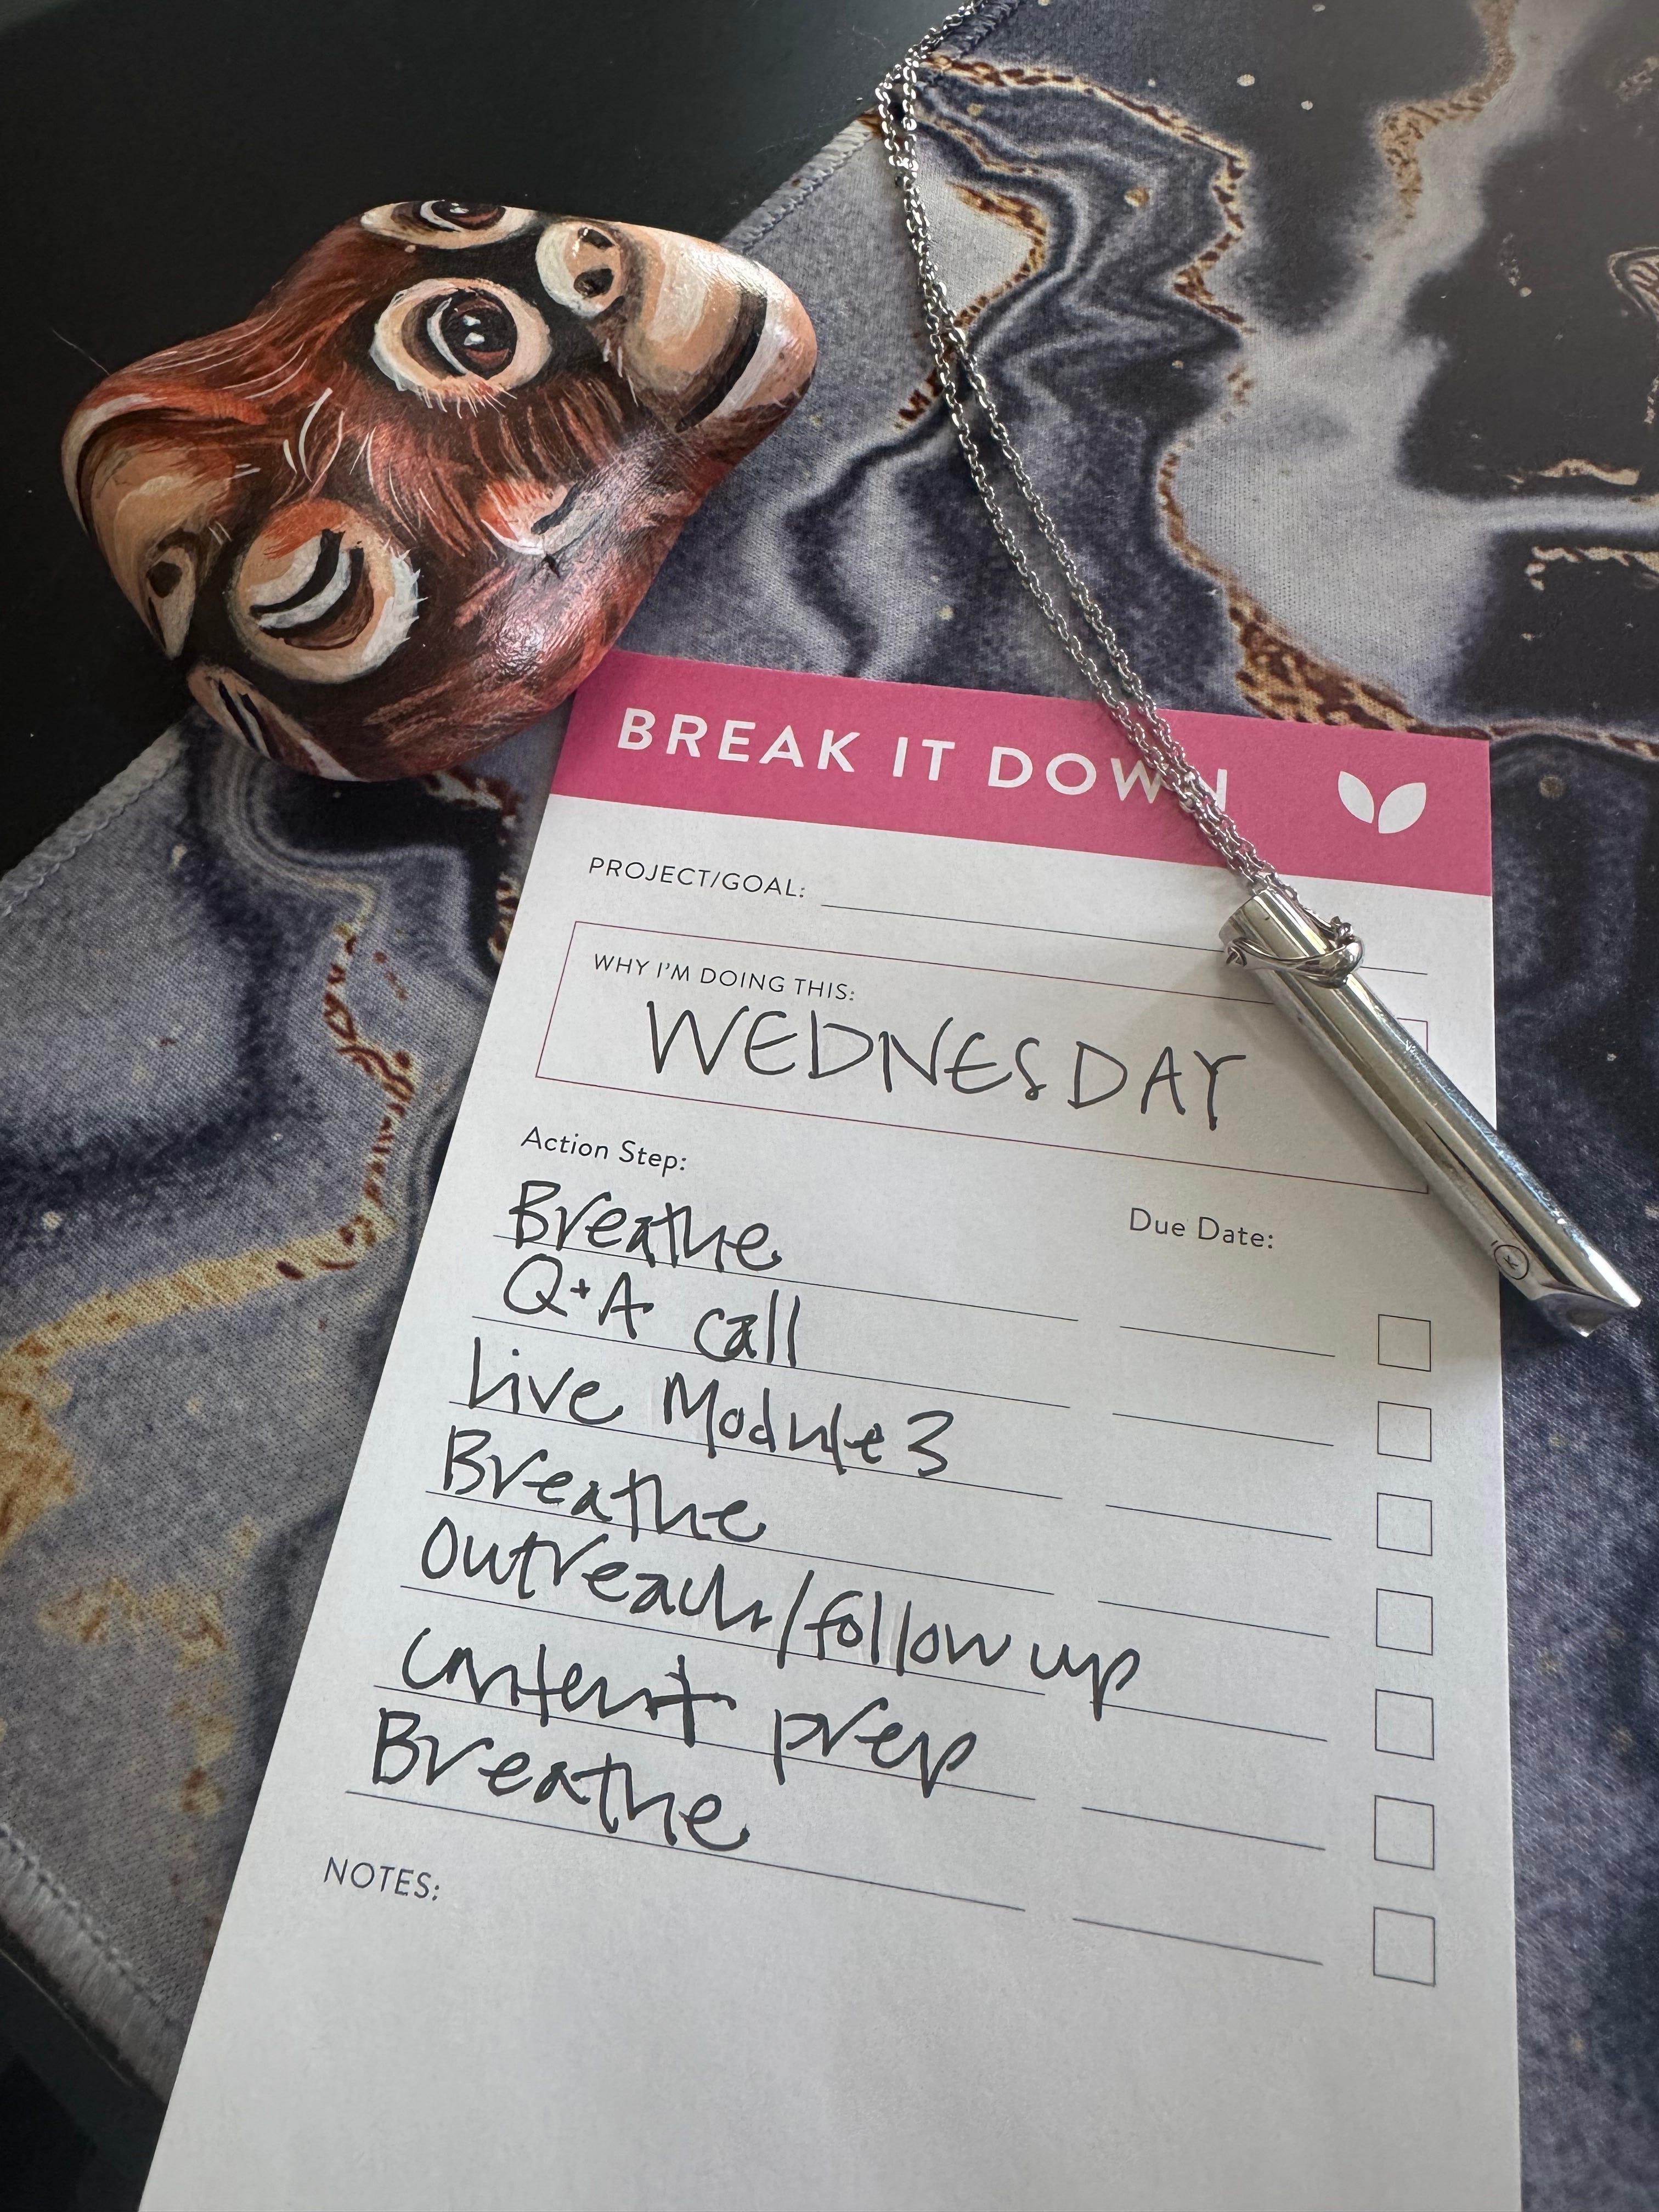 BREAK IT DOWN
PROJECT/GOAL:
WHY I'M DOING THIS:
WEDNESDAY
Action Step:
Due Date:
Breathe
Q+A call
Live Module 3
Breathe
Outreach/follow up
Content prep
Breathe
NOTES:
K